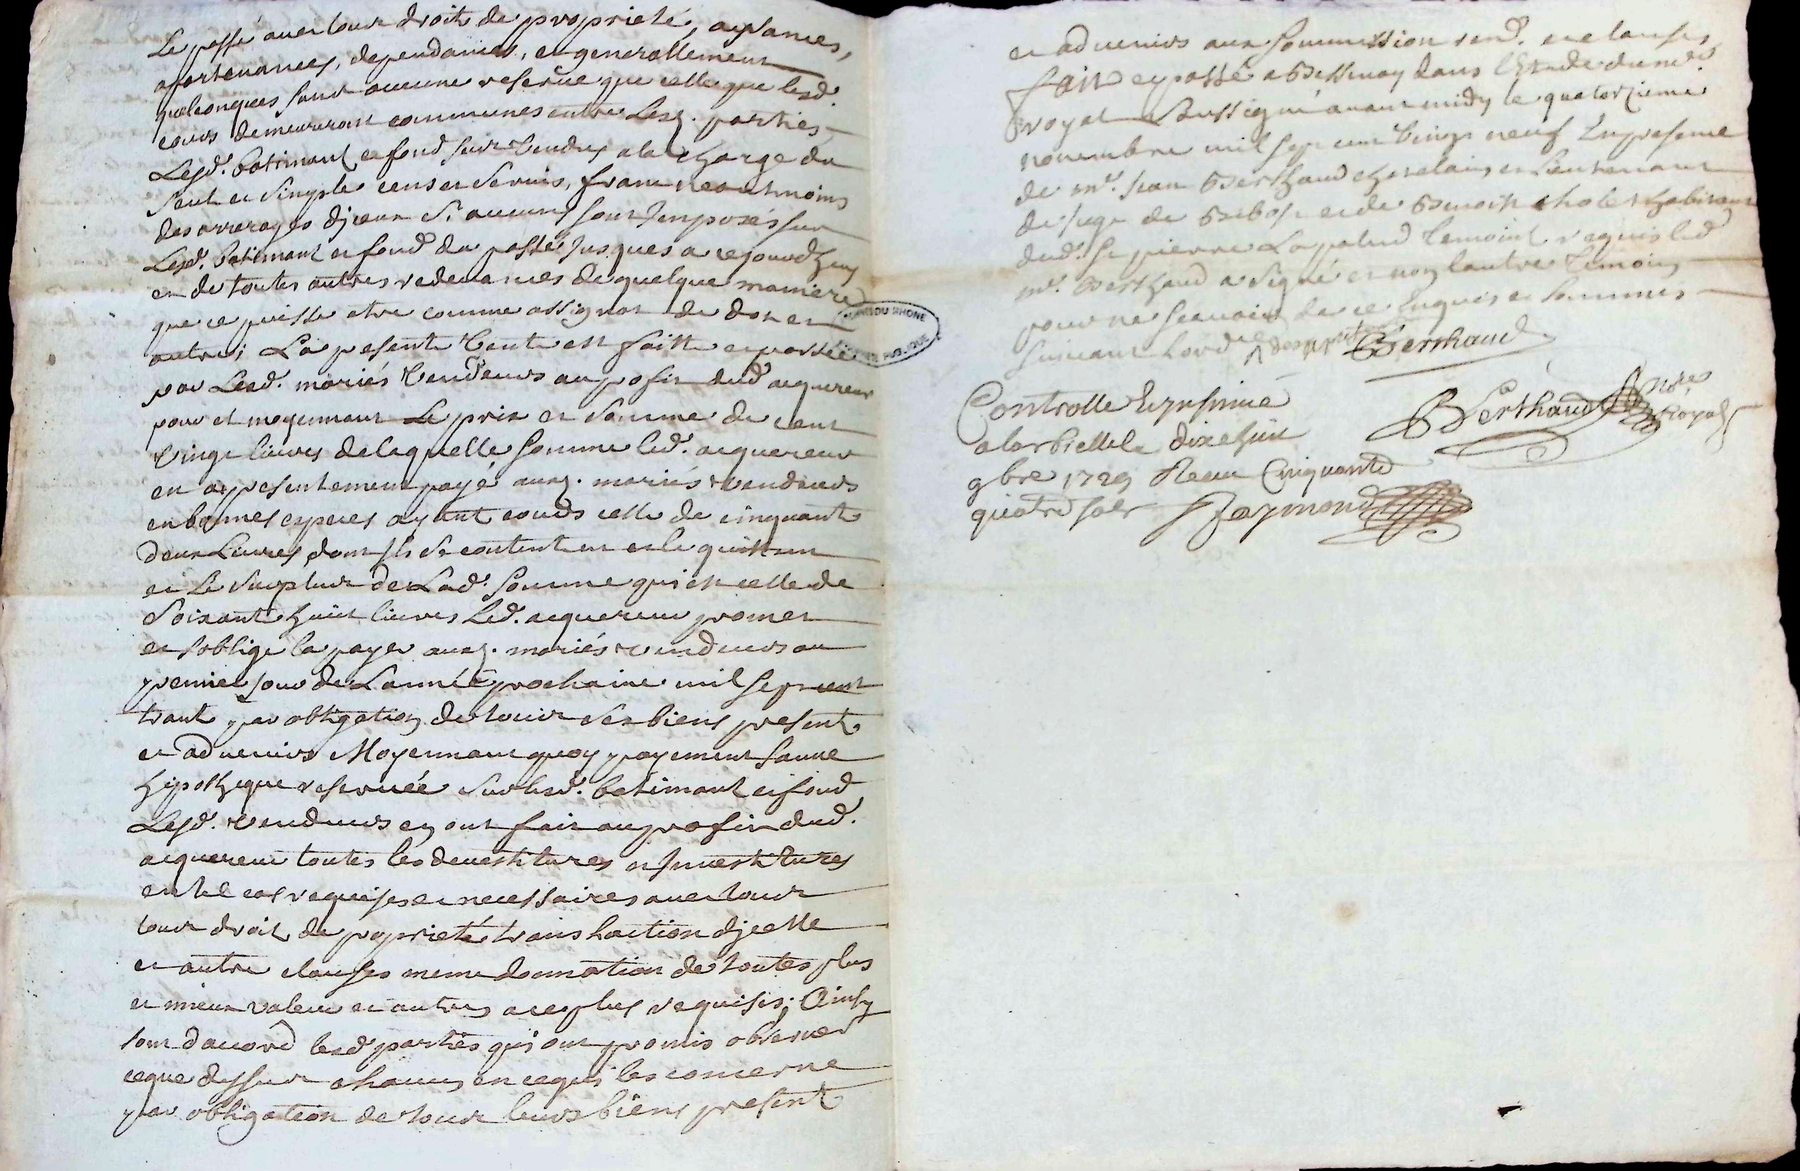 Le passé avec tout droits de proprieté, aysances,
apartenances, dependances, et generallement
quelconques sans aucune reserve que celle que lesd.
cours demeureront communes entre Lesd. parties
Lesd. batimant et fond sus vendus a la charge du
seul et simple cens et servis, franc neantmoins
des arrerages djceux si aucuns sont Imposes sur
Lesd. batimant et fond du passé jusques a cejourdhuy
et de toutes autres redevances de quelque maniere
que ce puisse etre comme assignat de dot et
autre; La presente vente est faitte et passée
par Lesd. mariés vendeurs au profit dud. acquereur
pour et moyennant Le prix et somme de cent
vingt livres de laquelle somme led. acquereur
en a presentement payé auxd. mariés vendeurs
en bonnes especes ayant cours celle de cinquante
deux Livres, dont jls se contentent et le quittent
et Le surplus de Lad. somme qui est celle de
soixante huit livres Led. acquereur promet
et soblige la payer auxd. mariés vendeurs au
premier jour de Lannée prochaine mil sept cent
trante par obligation de tous ses biens present
et advenirs Moyennant quoy payement sauve
hipotheque reservée sur lesd. batimant et fond
Lesd. vendeurs en ont fait au profit dud.
acquereur toutes les devestitures et jnvestitures
en tel cas requises et necessaires avec tous
tous droit de proprieté translaction djcelle
et autre clauses meme donnation de toutes plus
et mieux valeur et autres a ce plus requises; Ainsy
sont daccord lesd. parties qui ont promis observer
ce que dessus chacun en ce qui les concerne
par obligation de tous leurs biens present
et advenirs aux soumission ren. et clauses
fait et passé a Bessenay dans l'Etude du no.re
royal soussigné avant midy le quatorzieme
novembre mil sept cent vingt neuf En presence
de m.e Jean Berthaud chatelain et Lieutenant
de juge de et de Benoit cholet habitant
dud. St pierre Lapalud temoins requis led.
m.e Berthaud a signé et non lautre temoin
pour ne scavoir de ce Enquis et sommés
suivant Lordre Berthaud
Controllé Insinué Berthaud No.re
a larbresle le dixehuit Royal
9bre 1729 Receu Cinquante
quatre sols Raymond
DU RHONE
PUBLIQUE